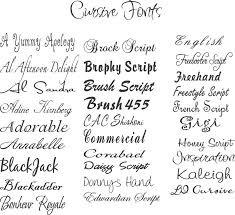 Cursive Fonts
A Yummy Apology
Al Afternoon Delight
Alison
Adine Kirnberg
Adorable
Annabelle
BlackJack
Blackadder
Bonheur Royale
Brock Script
Brophy Script
Brush Script
Brush 455
C.A.C. Shishoni
Commercial
Corabael
Daizy Script
Donny's Hand
Edwardian Script
English
Freebooter Script
Freehand
Freestyle Script
French Script
Gigi
Honey Script
Inspiration
Kaleigh
LD Cursive